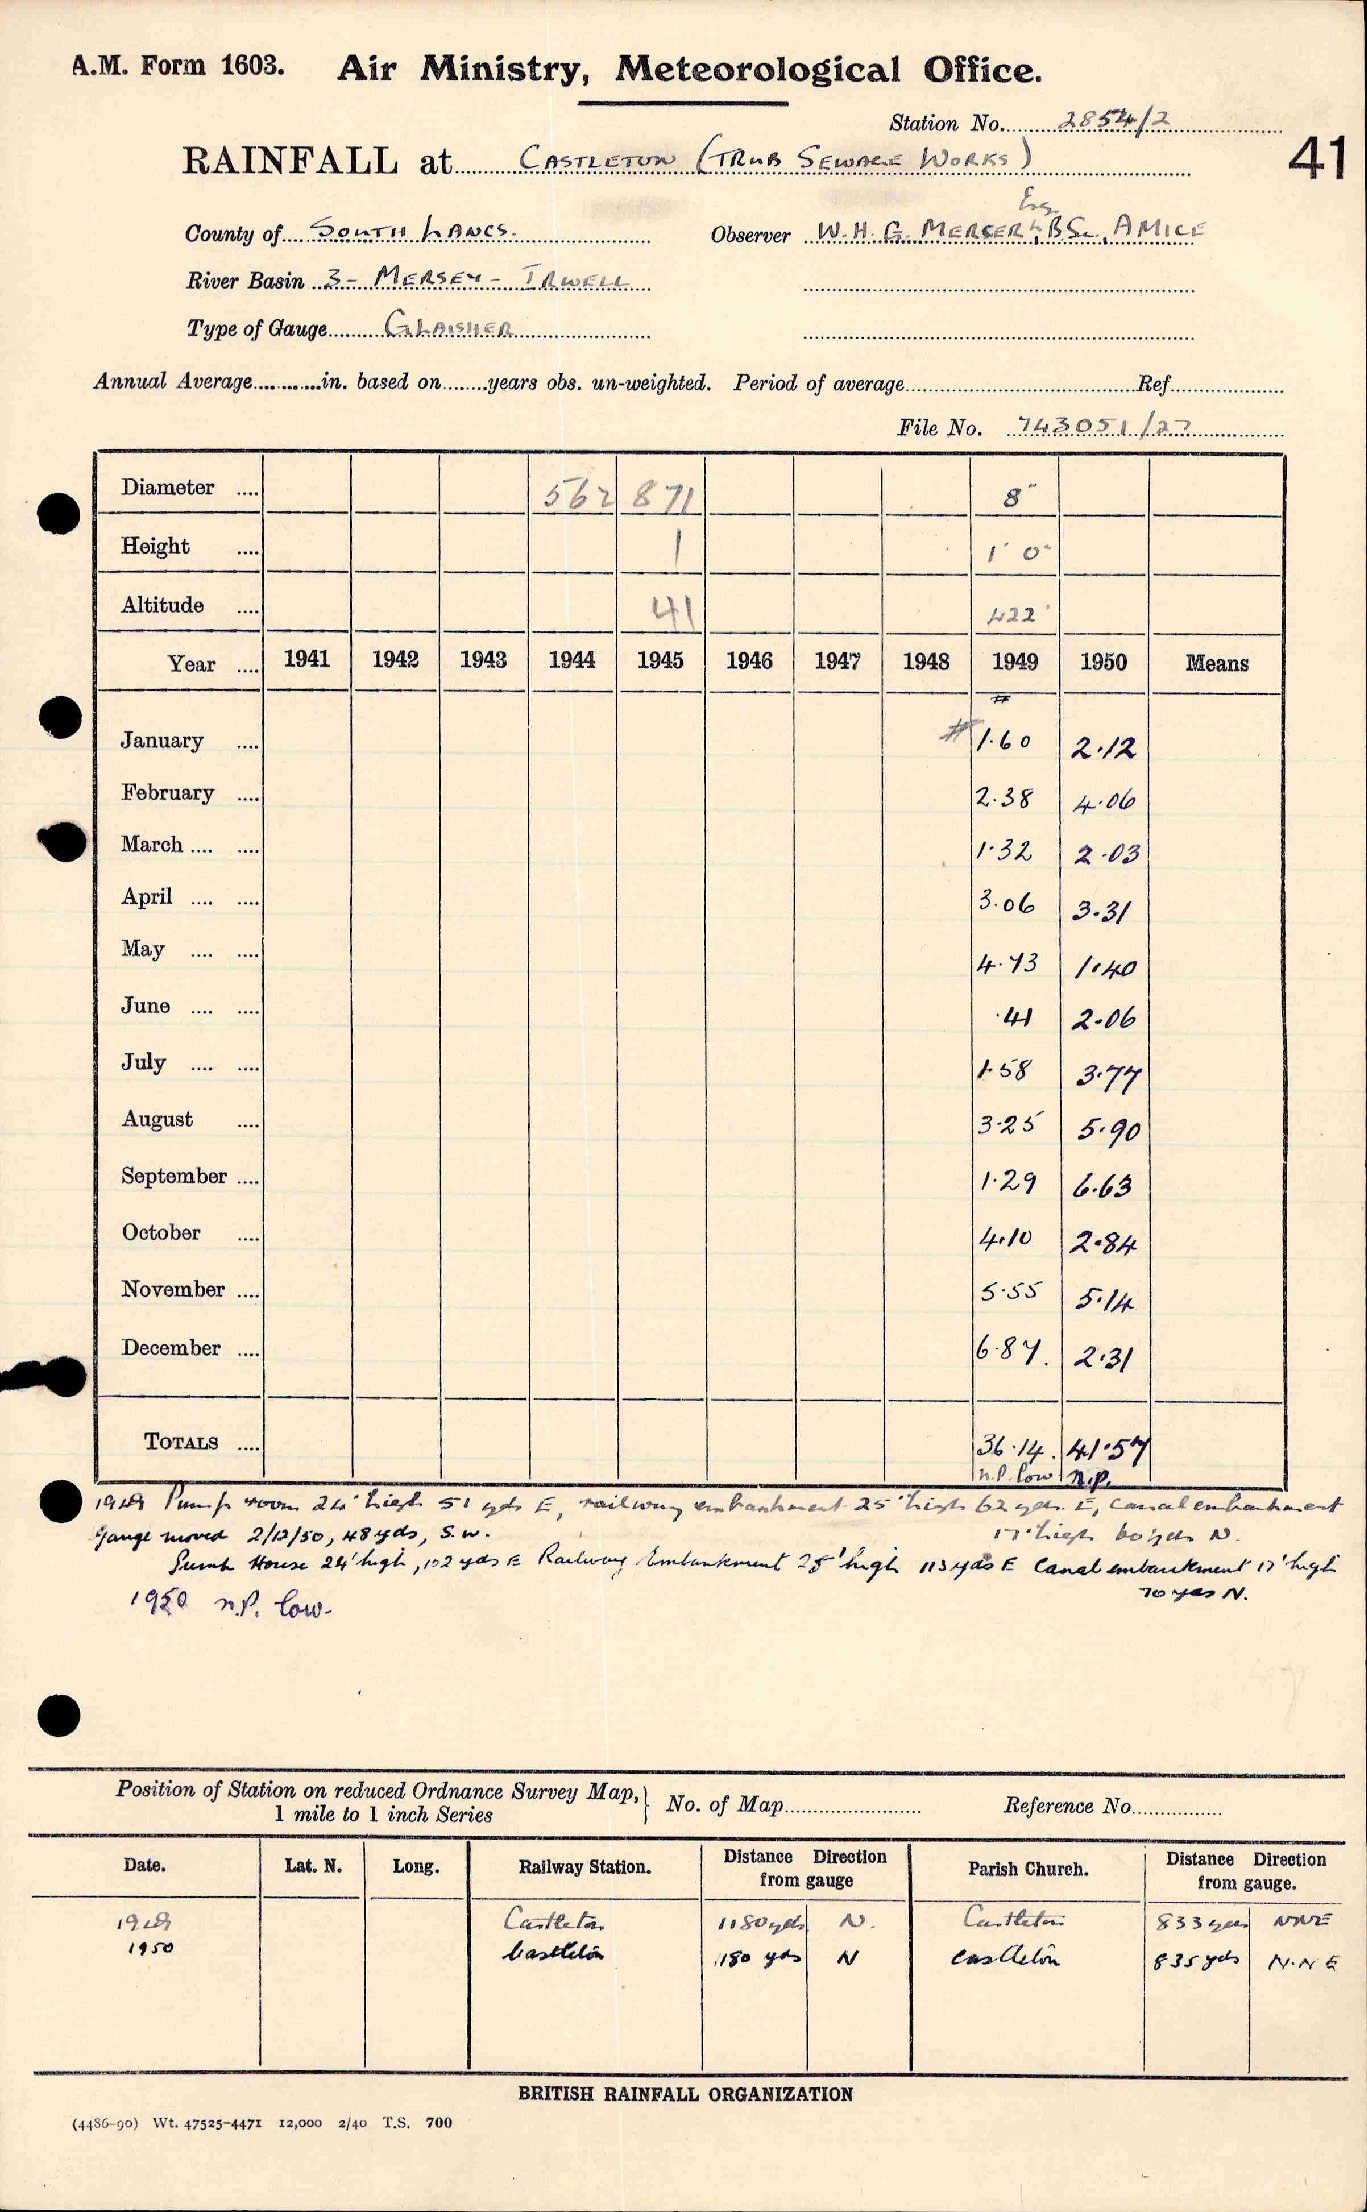 A.M. Form 1603. Air Ministry, Meteorological Office.
Station No. 2854/2
RAINFALL at CASTLETON (TRUB SEWAGE WORKS) 41
Esq
County of SOUTH LANCS. Observer W.H.G. MERCER, BSc., AMICE
River Basin 3 - MERSEY - IRWELL
Type of Gauge GLAISHER
Annual Average in. based on years obs. un-weighted. Period of average Ref
File No. 743051/27
Diameter 562 871 8"
Height 1 1' 0"
Altitude 41 422'
Year 1941 1942 1943 1944 1945 1946 1947 1948 1949 1950 Means
January # 1.60 2.12
February 2.38 4.06
March 1.32 2.03
April 3.06 3.31
May 4.73 1.40
June .41 2.06
July 1.58 3.77
August 3.25 5.90
September 1.29 6.63
October 4.10 2.84
November 5.55 5.14
December 6.87 2.31
TOTALS 36.14 41.57
n.p. low n.p.
Pump room 24' high 51 yds E, railway embankment 25' high 62 yds. E, canal embankment
17' high 60 yds N.
Gauge moved 2/12/50, 48 yds, S.W.
Pump House 24' high, 102 yds E Railway Embankment 25' high 113 yds E Canal embankment 17' high
70 yds N.
1950 n.p. low.
Position of Station on reduced Ordnance Survey Map, 1 mile to 1 inch Series } No. of Map Reference No.
Date. Lat. N. Long. Railway Station. Distance Direction from gauge Parish Church. Distance Direction from gauge.
Castleton 1180 yds N. Castleton 833 yds NNE
1950 Castleton 1180 yds N Castleton 835 yds N.N E
BRITISH RAINFALL ORGANIZATION
(4486-90) Wt. 47525-4471 12,000 2/40 T.S. 700